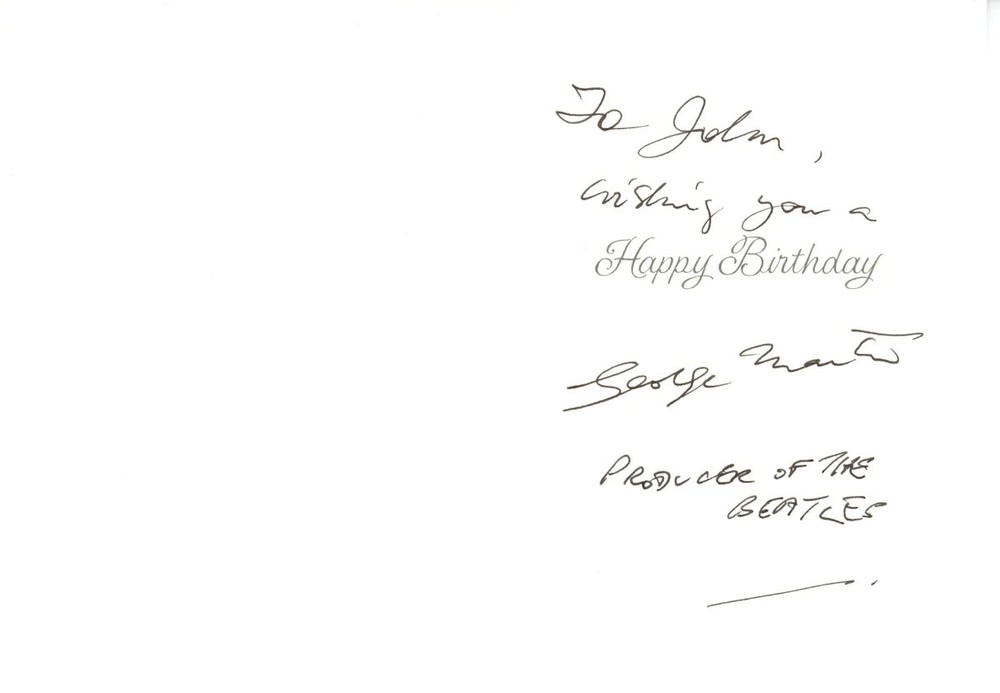 To John,
wishing you a
Happy Birthday
George Martin
PRODUCER OF THE
BEATLES